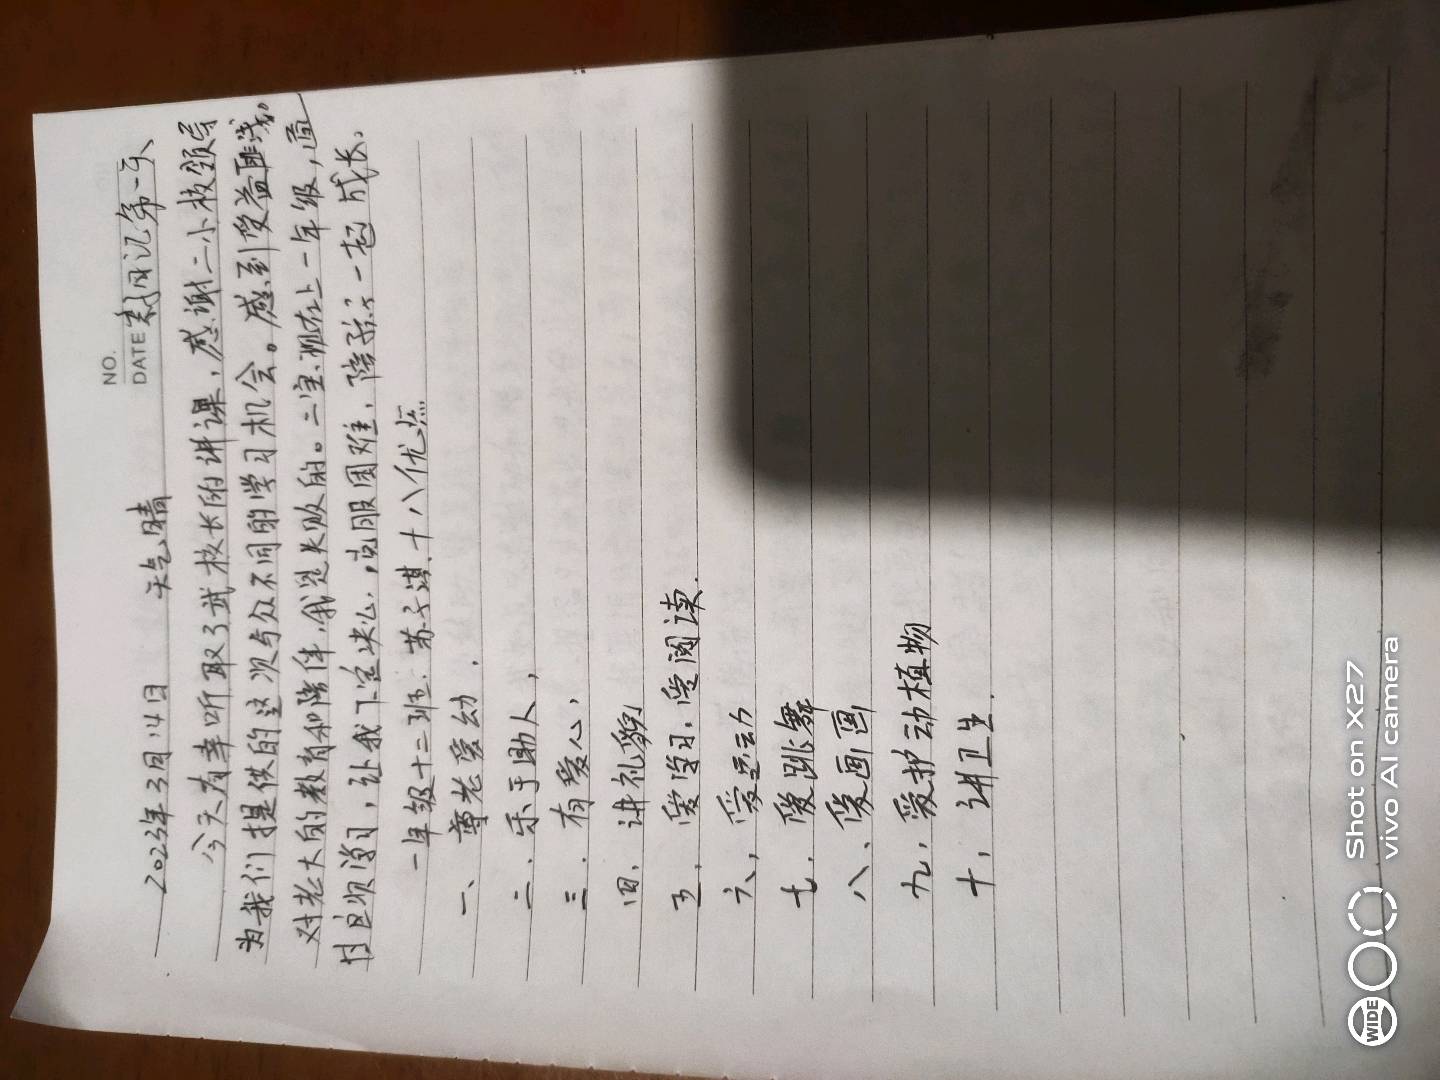 NO.
DATE 素月记第一天
2023年3月14日 天气晴
今天有幸听取了武校长的讲课，感谢二小校领导
为我们提供的这次与众不同的学习机会。感到受益匪浅。
对老大的教育和陪伴，我是失败的。二宝现在上一年级，通
过这次学习，让我下定决心，克服困难，陪孩子一起成长。
一年级十二班：苏子淇十八优点
一、尊老爱幼．
二．乐于助人，
三．有爱心，
四．讲礼貌
五，爱学习．爱阅读．
六，爱运动
七．爱跳舞
八、爱画画
九，爱护动植物
十，讲卫生．
WIDE
Shot on X27
vivo AI camera